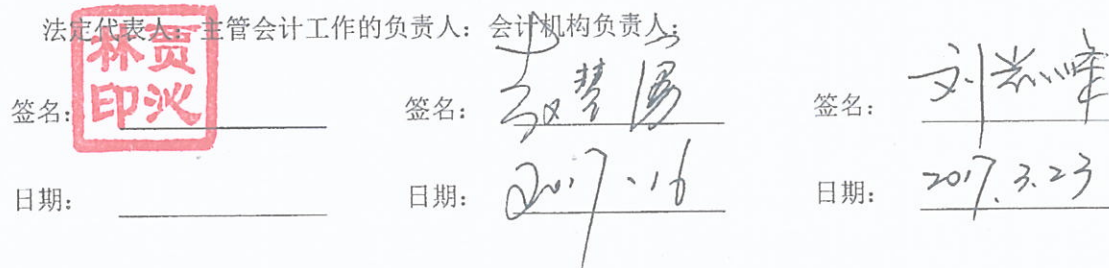 法定代表人：主管会计工作的负责人：会计机构负责人：
贾沁林印
签名： 签名： 签名：刘
日期： 日期：2017 日期：2017.3.23